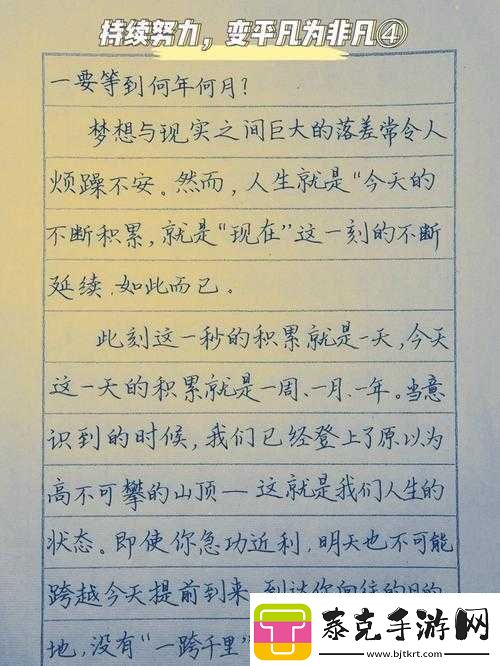 持续努力，变平凡为非凡④
一要等到何年何月？
梦想与现实之间巨大的落差常令人
烦躁不安。然而，人生就是“今天的
不断积累，就是“现在”这一刻的不断
延续，如此而已。
此刻这一秒的积累就是一天，今天
这一天的积累就是一周、一月、一年。当意
识到的时候，我们已经登上了原以为
高不可攀的山顶——这就是我们人生的
状态。即使你急功近利，明天也不可能
跨越今天提前到来。到达你向往的目的
地，没有“一跨千里”
泰克手游网
www.bjtkrt.com